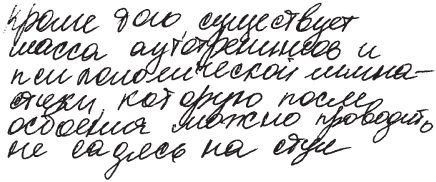 кроме того, существует
масса аутотренингов и
психологической гимна-
стики, которую после
освоения можно проводить
не садясь на стул